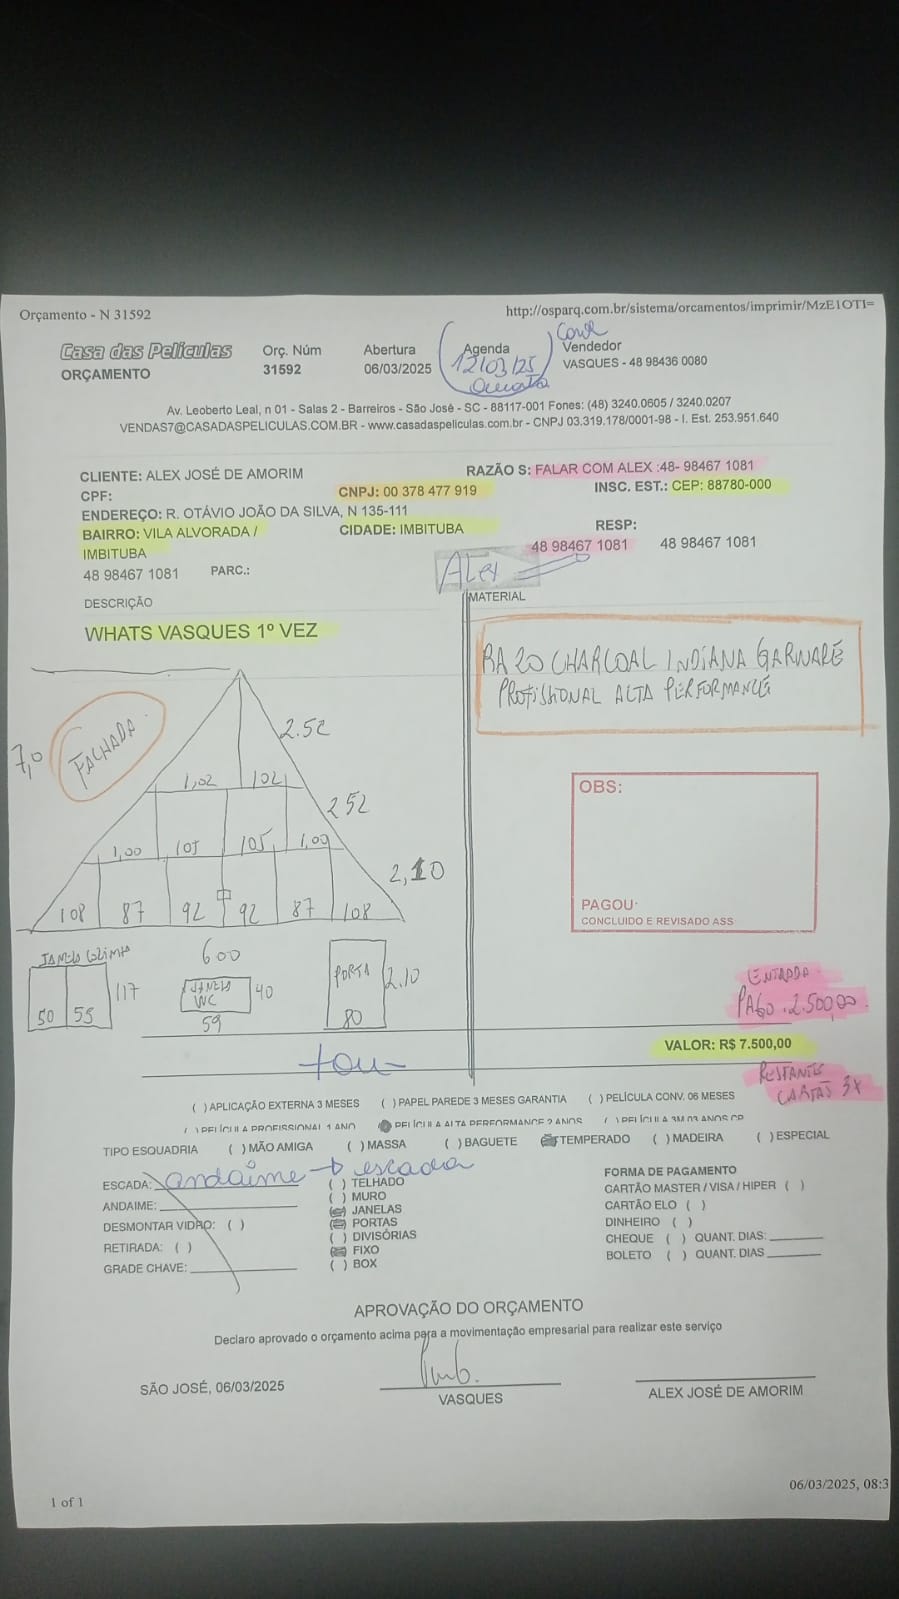 Orçamento - N 31592
http://osparq.com.br/sistema/orcamentos/imprimir/MzE1OTI=
Casa das Películas
ORÇAMENTO
Orç. Núm
31592
Abertura
06/03/2025
Agenda
12/03/25
Vendedor
VASQUES - 48 98436 0080
Av. Leoberto Leal, n 01 - Salas 2 - Barreiros - São José - SC - 88117-001 Fones: (48) 3240.0605 / 3240.0207
VENDAS7@CASADASPELICULAS.COM.BR - www.casadaspeliculas.com.br - CNPJ 03.319.178/0001-98 - I. Est. 253.951.640
CLIENTE: ALEX JOSÉ DE AMORIM
RAZÃO S: FALAR COM ALEX :48- 98467 1081
CPF:
CNPJ: 00 378 477 919
INSC. EST.: CEP: 88780-000
ENDEREÇO: R. OTÁVIO JOÃO DA SILVA, N 135-111
BAIRRO: VILA ALVORADA /
IMBITUBA
CIDADE: IMBITUBA
RESP:
48 98467 1081
48 98467 1081
48 98467 1081
PARC.:
Alex
DESCRIÇÃO
MATERIAL
WHATS VASQUES 1º VEZ
RA 20 CHARCOAL INDIANA GARWARE
PROFISSIONAL ALTA PERFORMANCE
7,0
FACHADA
2.52
1,02 102
2 52
1,00 105 105 1,00
2,10
108 87 92 92 87 108
600
JANELA
50 55
117
JANELA
WC
40
59
PORTA
2.10
80
OBS:
PAGOU
CONCLUIDO E REVISADO ASS
ENTRADA
PAGO. 2.500,00
VALOR: R$ 7.500,00
RESTANTE
CARTÃO 3X
( ) APLICAÇÃO EXTERNA 3 MESES ( ) PAPEL PAREDE 3 MESES GARANTIA ( ) PELÍCULA CONV. 06 MESES
( ) PELÍCULA PROFISSIONAL 1 ANO PELÍCULA ALTA PERFORMANCE 2 ANOS ( ) PELÍCULA 3M 03 ANOS
TIPO ESQUADRIA ( ) MÃO AMIGA ( ) MASSA ( ) BAGUETE TEMPERADO ( ) MADEIRA ( ) ESPECIAL
ESCADA: andaime → escada
ANDAIME:
DESMONTAR VIDRO: ( )
RETIRADA: ( )
GRADE CHAVE:
( ) TELHADO
( ) MURO
JANELAS
PORTAS
( ) DIVISÓRIAS
FIXO
( ) BOX
FORMA DE PAGAMENTO
CARTÃO MASTER / VISA / HIPER ( )
CARTÃO ELO ( )
DINHEIRO ( )
CHEQUE ( ) QUANT. DIAS:
BOLETO ( ) QUANT. DIAS
APROVAÇÃO DO ORÇAMENTO
Declaro aprovado o orçamento acima para a movimentação empresarial para realizar este serviço
SÃO JOSÉ, 06/03/2025
VASQUES
ALEX JOSÉ DE AMORIM
06/03/2025, 08:3
1 of 1